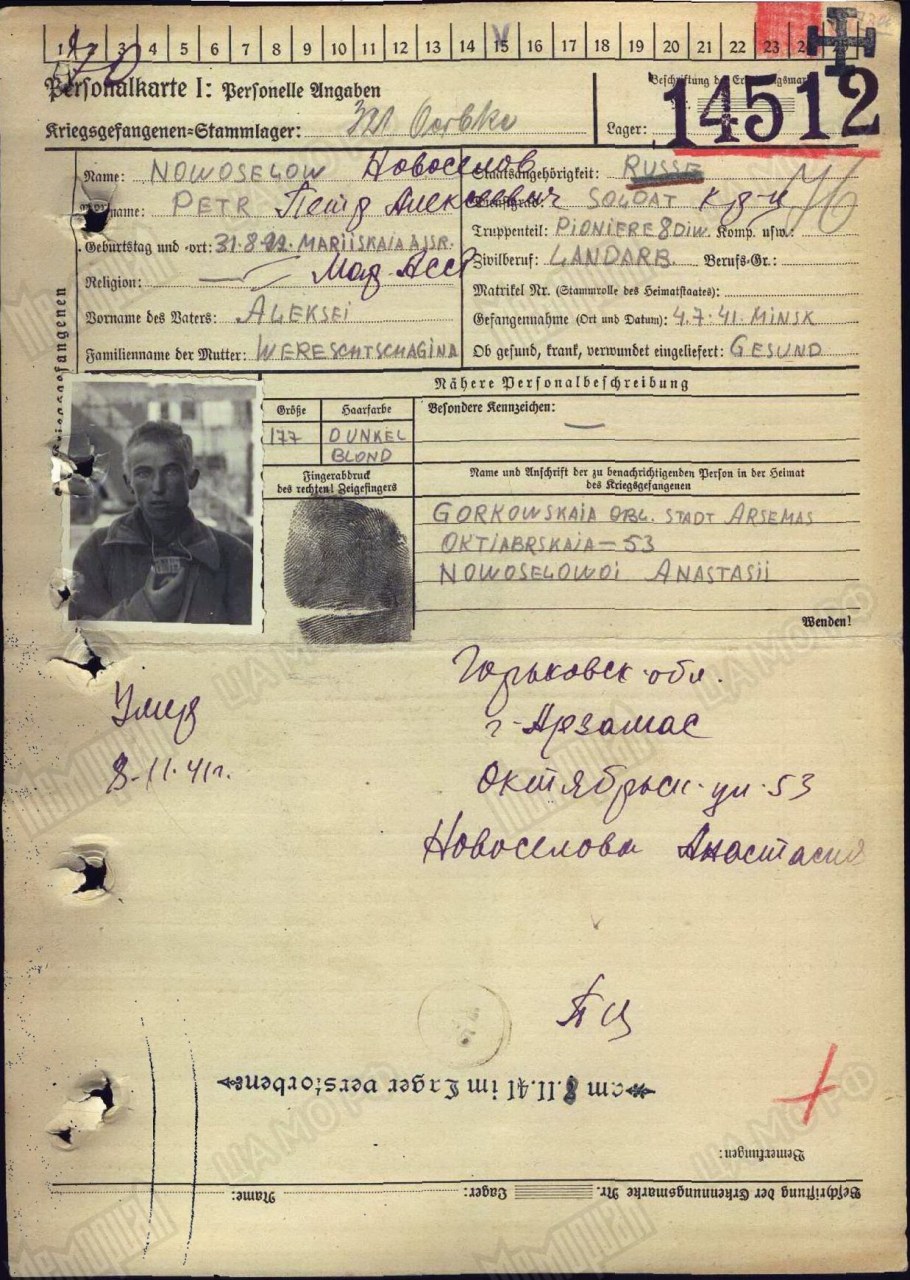 1 2 3 4 5 6 7 8 9 10 11 12 13 14 15 16 17 18 19 20 21 22 23 24
Personalkarte I: Personelle Angaben
Kriegsgefangenen=Stammlager: 321 Oerbke
Beschriftung der Erkennungsmarke
14512
Lager:
Name: NOWOSELOW Новоселов
Staatsangehörigkeit: RUSSE
Vorname: PETR Петр Алексеевич
Dienstgrad: SOLDAT к-р-ц
Geburtstag und -ort: 31.8. MARIISKAIA A.SSR.
Truppenteil: PIONIERE 8 DIW. Komp. usw.:
Мар Асср
Religion: —
Zivilberuf: LANDARB. Berufs-Gr.:
Matrikel Nr. (Stammrolle des Heimatstaates):
Vorname des Vaters: ALEKSEI
Gefangennahme (Ort und Datum): 4.7.41. MINSK
Familienname der Mutter: WERESCHTSCHAGINA
Ob gesund, krank, verwundet eingeliefert: GESUND
Nähere Personalbeschreibung
Größe
Haarfarbe
Besondere Kennzeichen: —
177
DUNKEL
BLOND
Fingerabdruck
des rechten! Zeigefingers
Name und Anschrift der zu benachrichtigenden Person in der Heimat
des Kriegsgefangenen
GORKOWSKAIA OBL. STADT ARSEMAS
OKTIABRSKAIA – 53
NOWOSELOWOI ANASTASII
Wenden!
Умер
8.11.41г.
Горьковск. обл.
г. Арзамас
Октябрьск. ул. 53
Новоселова Анастасия
am 8.11.41 im Lager verstorben
Bemerkungen:
Beschriftung der Erkennungsmarke Nr. Lager: Name:
Мемориал
ЦАМО РФ